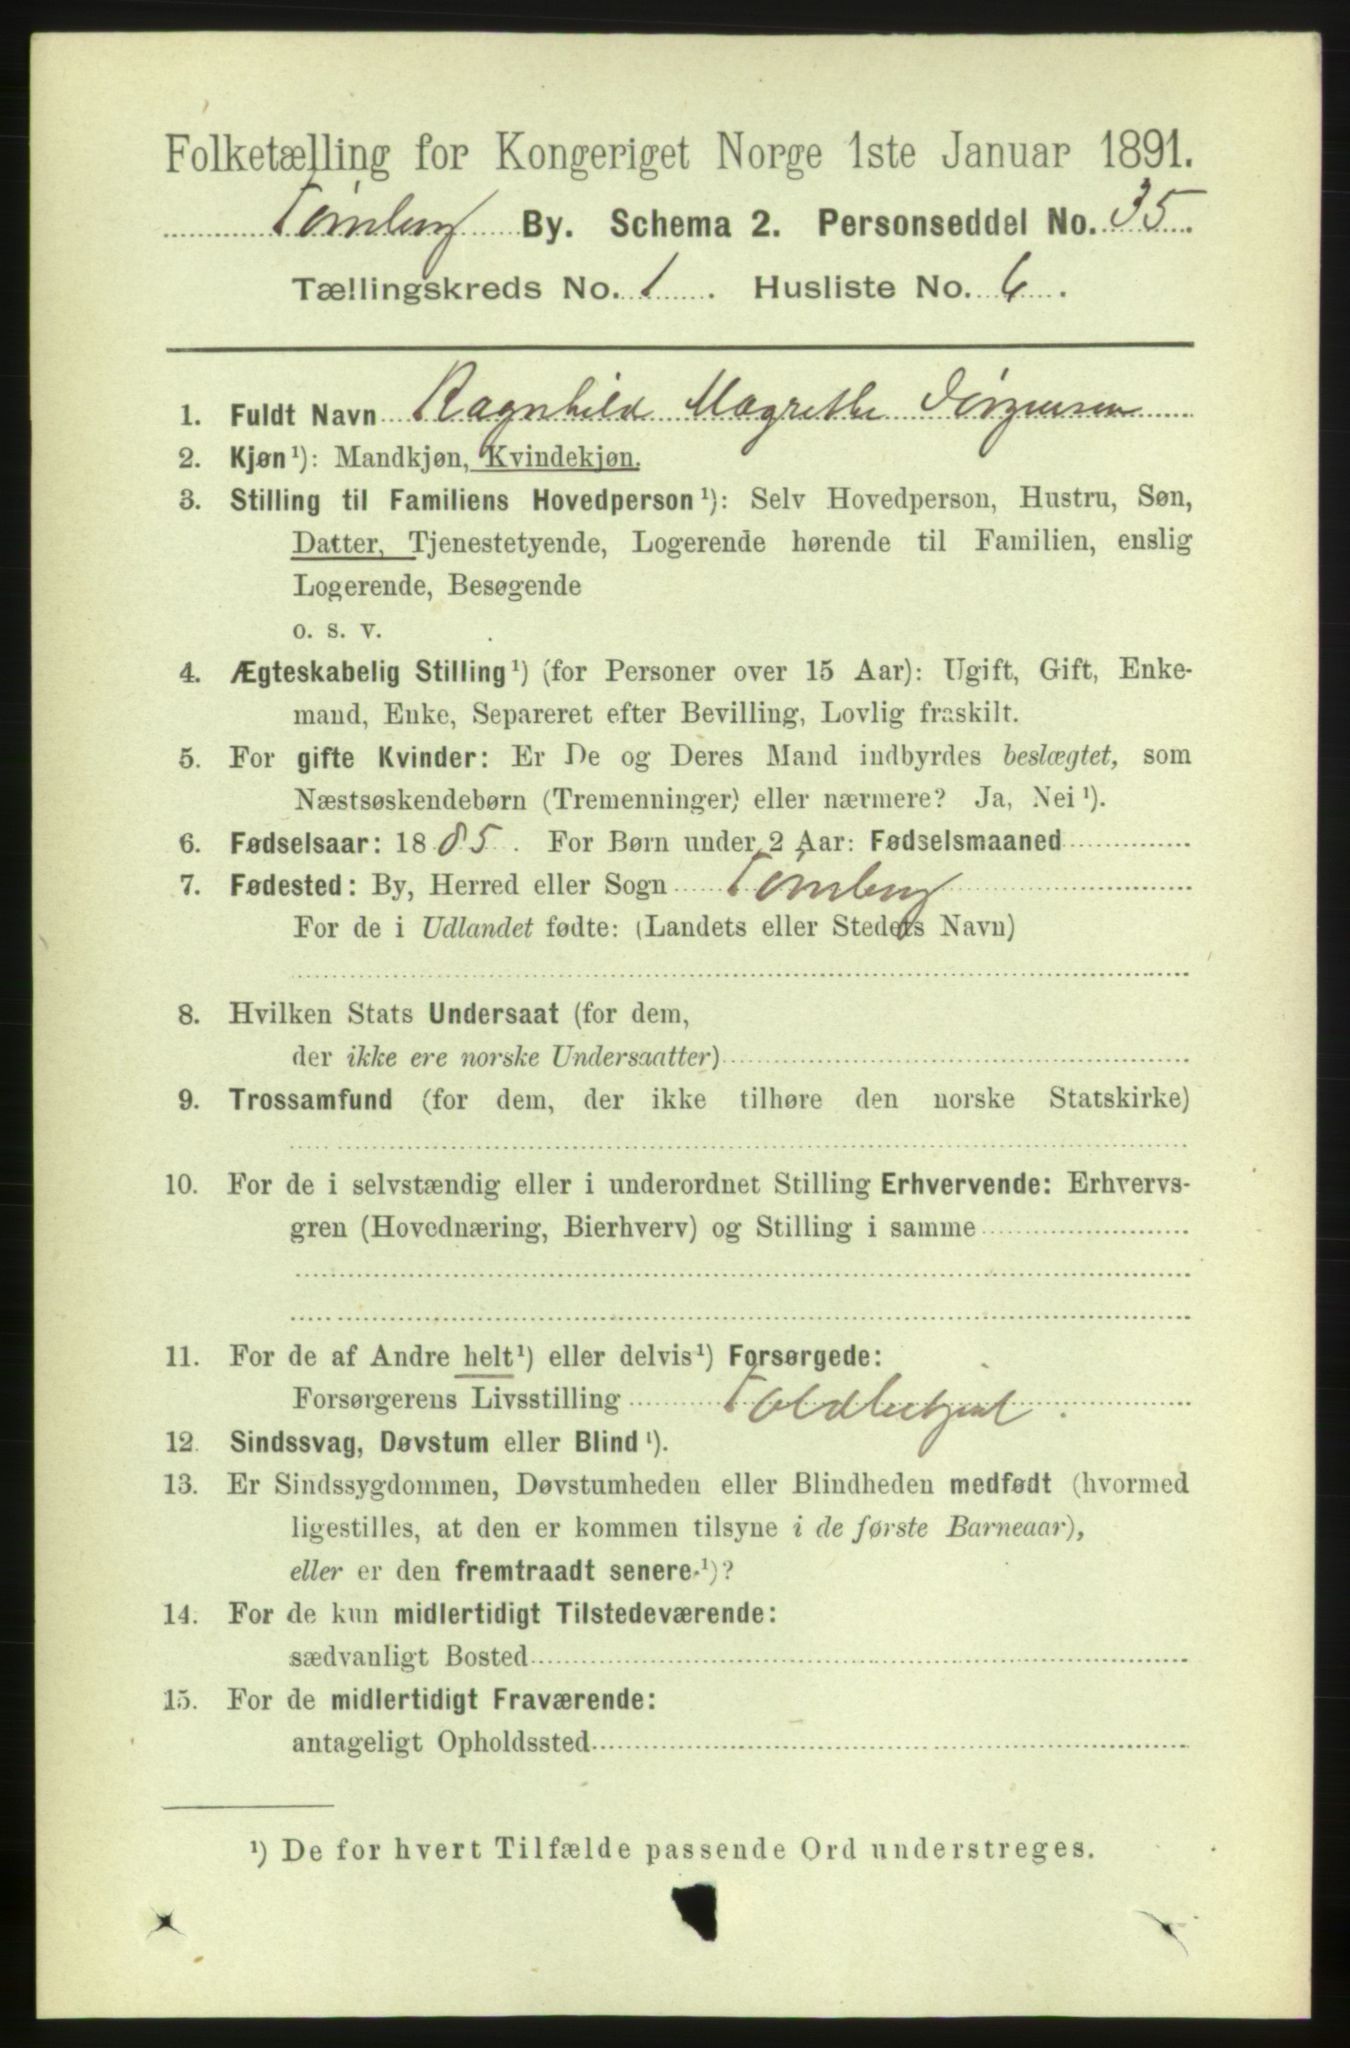 Folketælling for Kongeriget Norge 1ste Januar 1891.
Tønsberg By. Schema 2. Personseddel No. 35.
Tællingskreds No. 1. Husliste No. 6.
1. Fuldt Navn Ragnhild Magrethe Jørgensen
2. Kjøn¹): Mandkjøn, Kvindekjøn.
3. Stilling til Familiens Hovedperson¹): Selv Hovedperson, Hustru, Søn,
Datter, Tjenestetyende, Logerende hørende til Familien, enslig
Logerende, Besøgende
o. s. v.
4. Ægteskabelig Stilling¹) (for Personer over 15 Aar): Ugift, Gift, Enke-
mand, Enke, Separeret efter Bevilling, Lovlig fraskilt.
5. For gifte Kvinder: Er De og Deres Mand indbyrdes beslægtet, som
Næstsøskendebørn (Tremenninger) eller nærmere? Ja, Nei¹).
6. Fødselsaar: 1885. For Børn under 2 Aar: Fødselsmaaned
7. Fødested: By, Herred eller Sogn Tønsberg
For de i Udlandet fødte: (Landets eller Stedets Navn)
8. Hvilken Stats Undersaat (for dem,
der ikke ere norske Undersaatter)
9. Trossamfund (for dem, der ikke tilhøre den norske Statskirke)
10. For de i selvstændig eller i underordnet Stilling Erhvervende: Erhvervs-
gren (Hovednæring, Bierhverv) og Stilling i samme
11. For de af Andre helt¹) eller delvis¹) Forsørgede:
Forsørgerens Livsstilling Toldbetjent.
12. Sindssvag, Døvstum eller Blind¹).
13. Er Sindssygdommen, Døvstumheden eller Blindheden medfødt (hvormed
ligestilles, at den er kommen tilsyne i de første Barneaar),
eller er den fremtraadt senere¹)?
14. For de kun midlertidigt Tilstedeværende:
sædvanligt Bosted
15. For de midlertidigt Fraværende:
antageligt Opholdssted
¹) De for hvert Tilfælde passende Ord understreges.